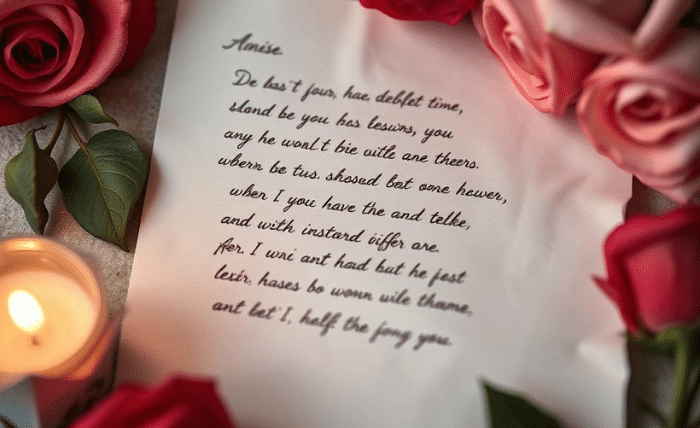 Amise
De bas't four, hae debfet time,
sland be you has lesuns, you
any he wonl't bie uitle ane theers.
whern be tus. shosud bat oone hawer,
when I you have the and telke,
and with instard öiffer are.
Her. I wni ant had but he fest
lexir, hases bo womn uile thame,
ant bet' I, helf the jong you.